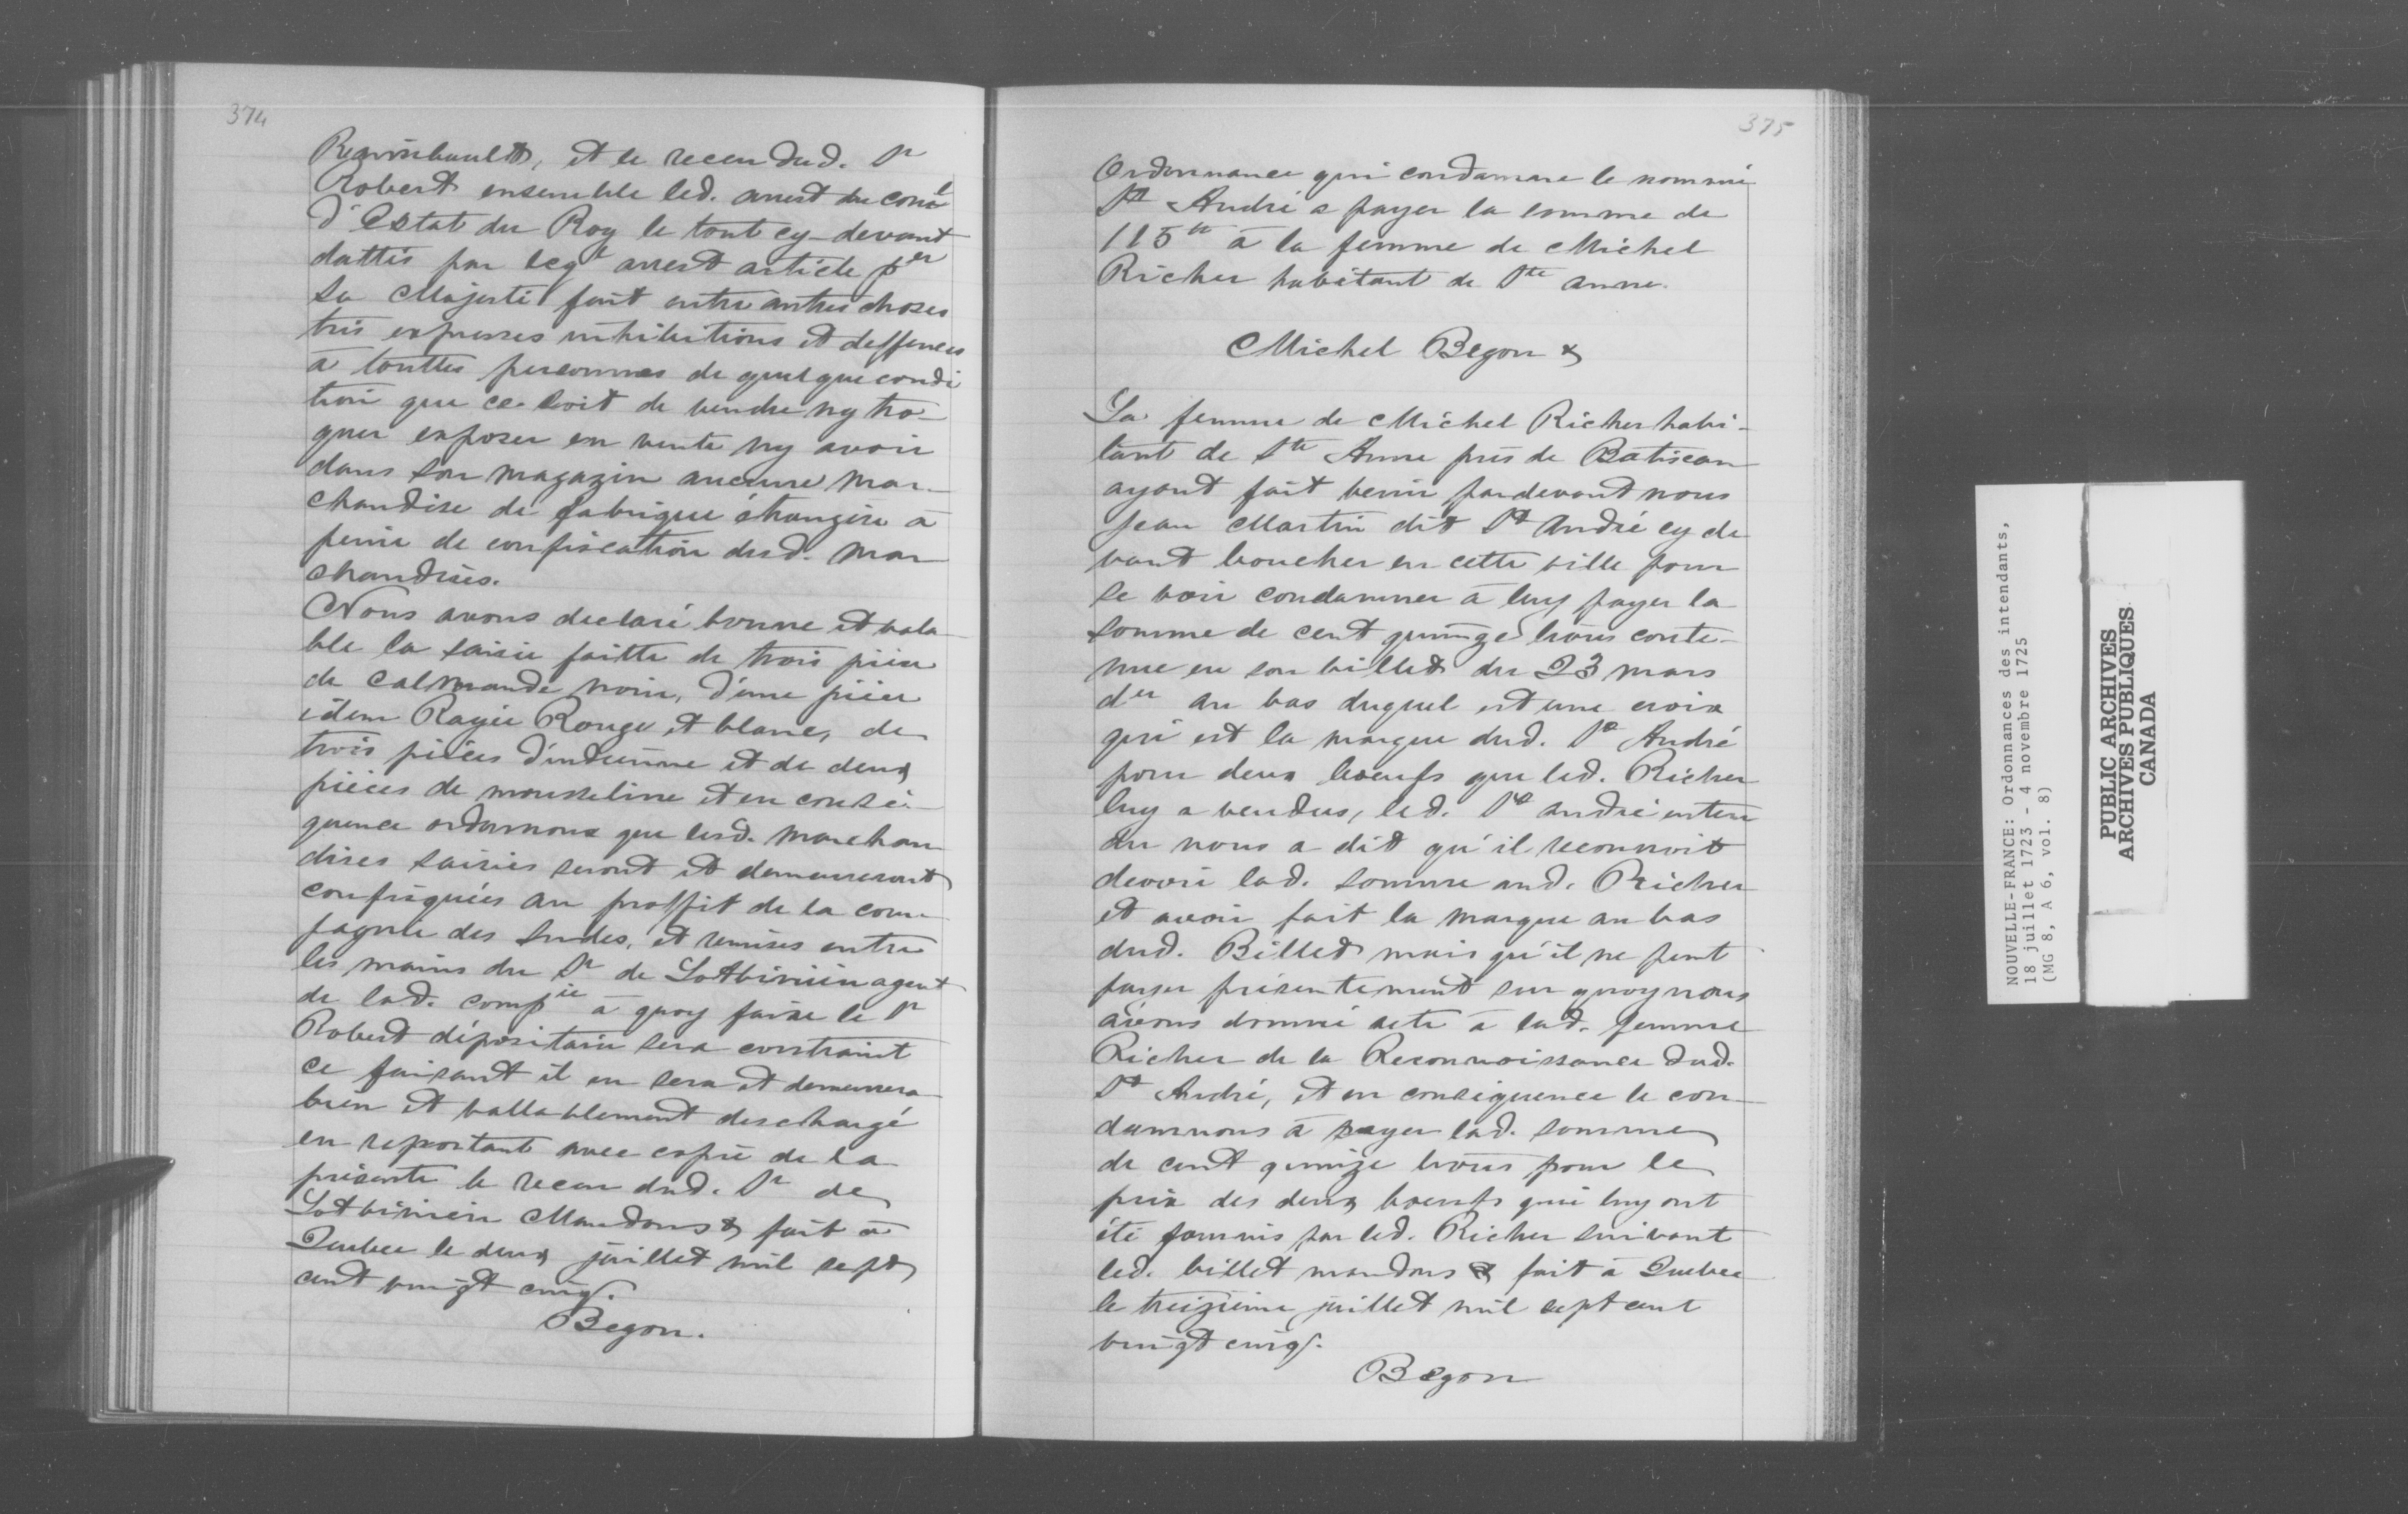 374
Raimbault, et le receu dud. Sr
Robert ensemble led. arrest du conel
d'Estat du Roy le tout cy-devant
dattés par leql arrest article per
Sa Majesté fait entre autres choses
très expresses inhibitions et deffences
à touttes personnes de quelque condi
tion que ce soit de vendre ny tro-
quer exposer en vente ny avoir
dans son magazin aucune mar-
chandise de fabrique étrangère à
peine de confiscation desd. mar
chandises.
Nous avons declaré bonne et vala
ble la saisie faitte de trois pièces
de calmande noire, d'une pièce
idem Rayée Rouge et blanc, de
trois pièces d'indienne et de deux
pièces de mousseline et en consé-
quence ordonnons que lesd. marchan
dises saisies seront et demeureront
confisquées au proffit de la com-
pagnie des Indes, et remises entre
les mains du Sr de Lotbinière agent
de lad. compie à quoy faire le Sr
Robert dépositaire sera contraint
ce faisant il en sera et demeurera
bien et vallablement deschargé
en reportant avec copie de la
présente le receu dud. Sr de
Lotbinière Mandons & fait à
Quebec le deux juillet mil sept
cent vingt cinq.
Begon.
375
Ordonnance qui condamne le nommé
St André a payer la somme de
115tt à la femme de Michel
Richer habitant de Ste anne.
Michel Begon &
La femme de Michel Richer habi-
tant de Ste Anne près de Batiscan
ayant fait venir pardevant nous
Jean Martin dit St André cy de
vant boucher en cette ville pour
se voir condamner à luy payer la
somme de cent quinze livres conte-
nue en son billet du 23 mars
der au bas duquel est une croix
qui est la marque dud. St André
pour deux boeufs que led. Richer
luy a vendus, led. St andré enten
du nous a dit qu'il reconnoit
devoir lad. somme aud. Richer
et avoir fait la marque au bas
dud. Billet mais qu'il ne peut
payer présentement sur quoy nous
avons donné acte à lad. femme
Richer de la Reconnoissance dud.
St André, et en conséquence le con-
damnons à payer lad. somme
de cent quinze livres pour le
prix des deux boeufs qui luy ont
été fournis par led. Richer suivant
led. billet mandons & fait à Quebec
le treizième juillet mil sept cent
vingt cinq.
Begon
NOUVELLE-FRANCE: Ordonnances des intendants,
18 juillet 1723 - 4 novembre 1725
(MG 8, A 6, vol. 8)
PUBLIC ARCHIVES
ARCHIVES PUBLIQUES
CANADA